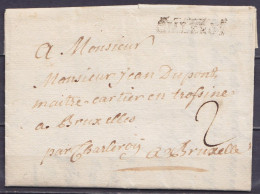 A Monsieur
Monsieur Jean Dupont
maitre cartier en
a Bruxelles
par Charleroy
a Bruxelle
2